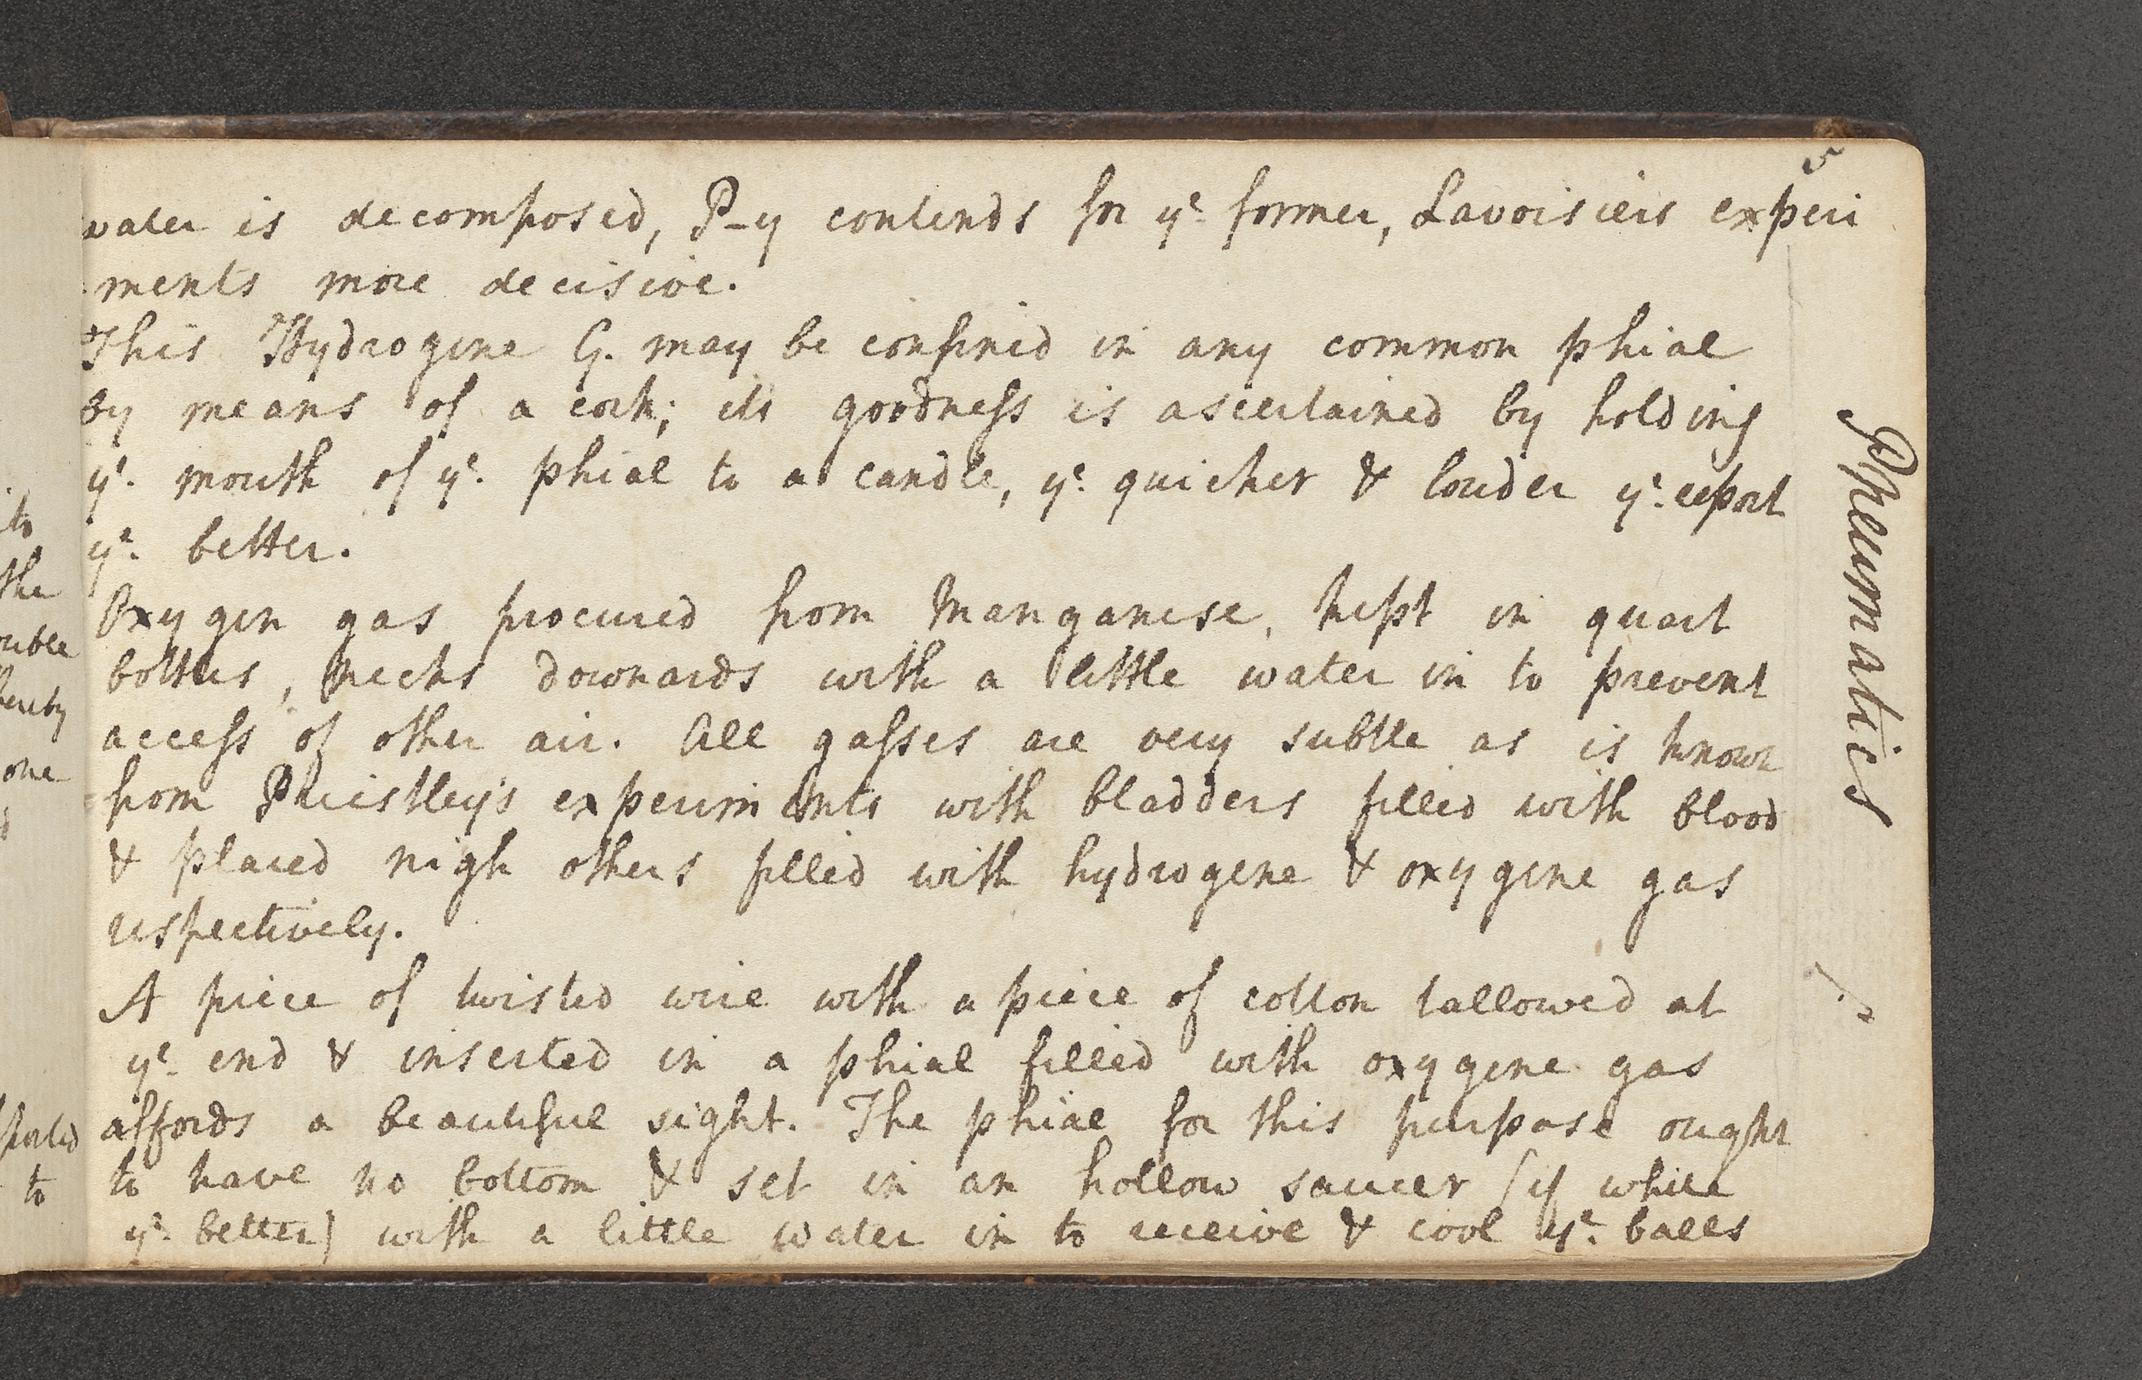 5
water is decomposed, P–y contends for yͤ. former, Lavoisiers experi
-ments more decisive.
This Hydrogene G. may be confined in any common phial
by means of a cork; its goodneſs is ascertained by holding
yͤ. mouth of yͤ. phial to a candle, yͤ. quicker & louder yͤ. report
yͤ. better.
Oxygen gas procured from Manganese, kept in quart
bottles, necks downards with a little water in to prevent
acceſs of other air. All gaſses are very subtle as is known
from Priestley's experiments with bladders filled with blood
& placed nigh others filled with hydrogene & oxygene gas
respectively.
A piece of twisted wire with a piece of cotton tallowed at
yͤ. end & inserted in a phial filled with oxygene gas
affords a beautiful sight. The phial for this purpose ought
to have no bottom & set in an hollow saucer (if white
yͤ. better) with a little water in to receive & cool yͤ. balls
Pneumatics
to
the
ouble
one
ported
to